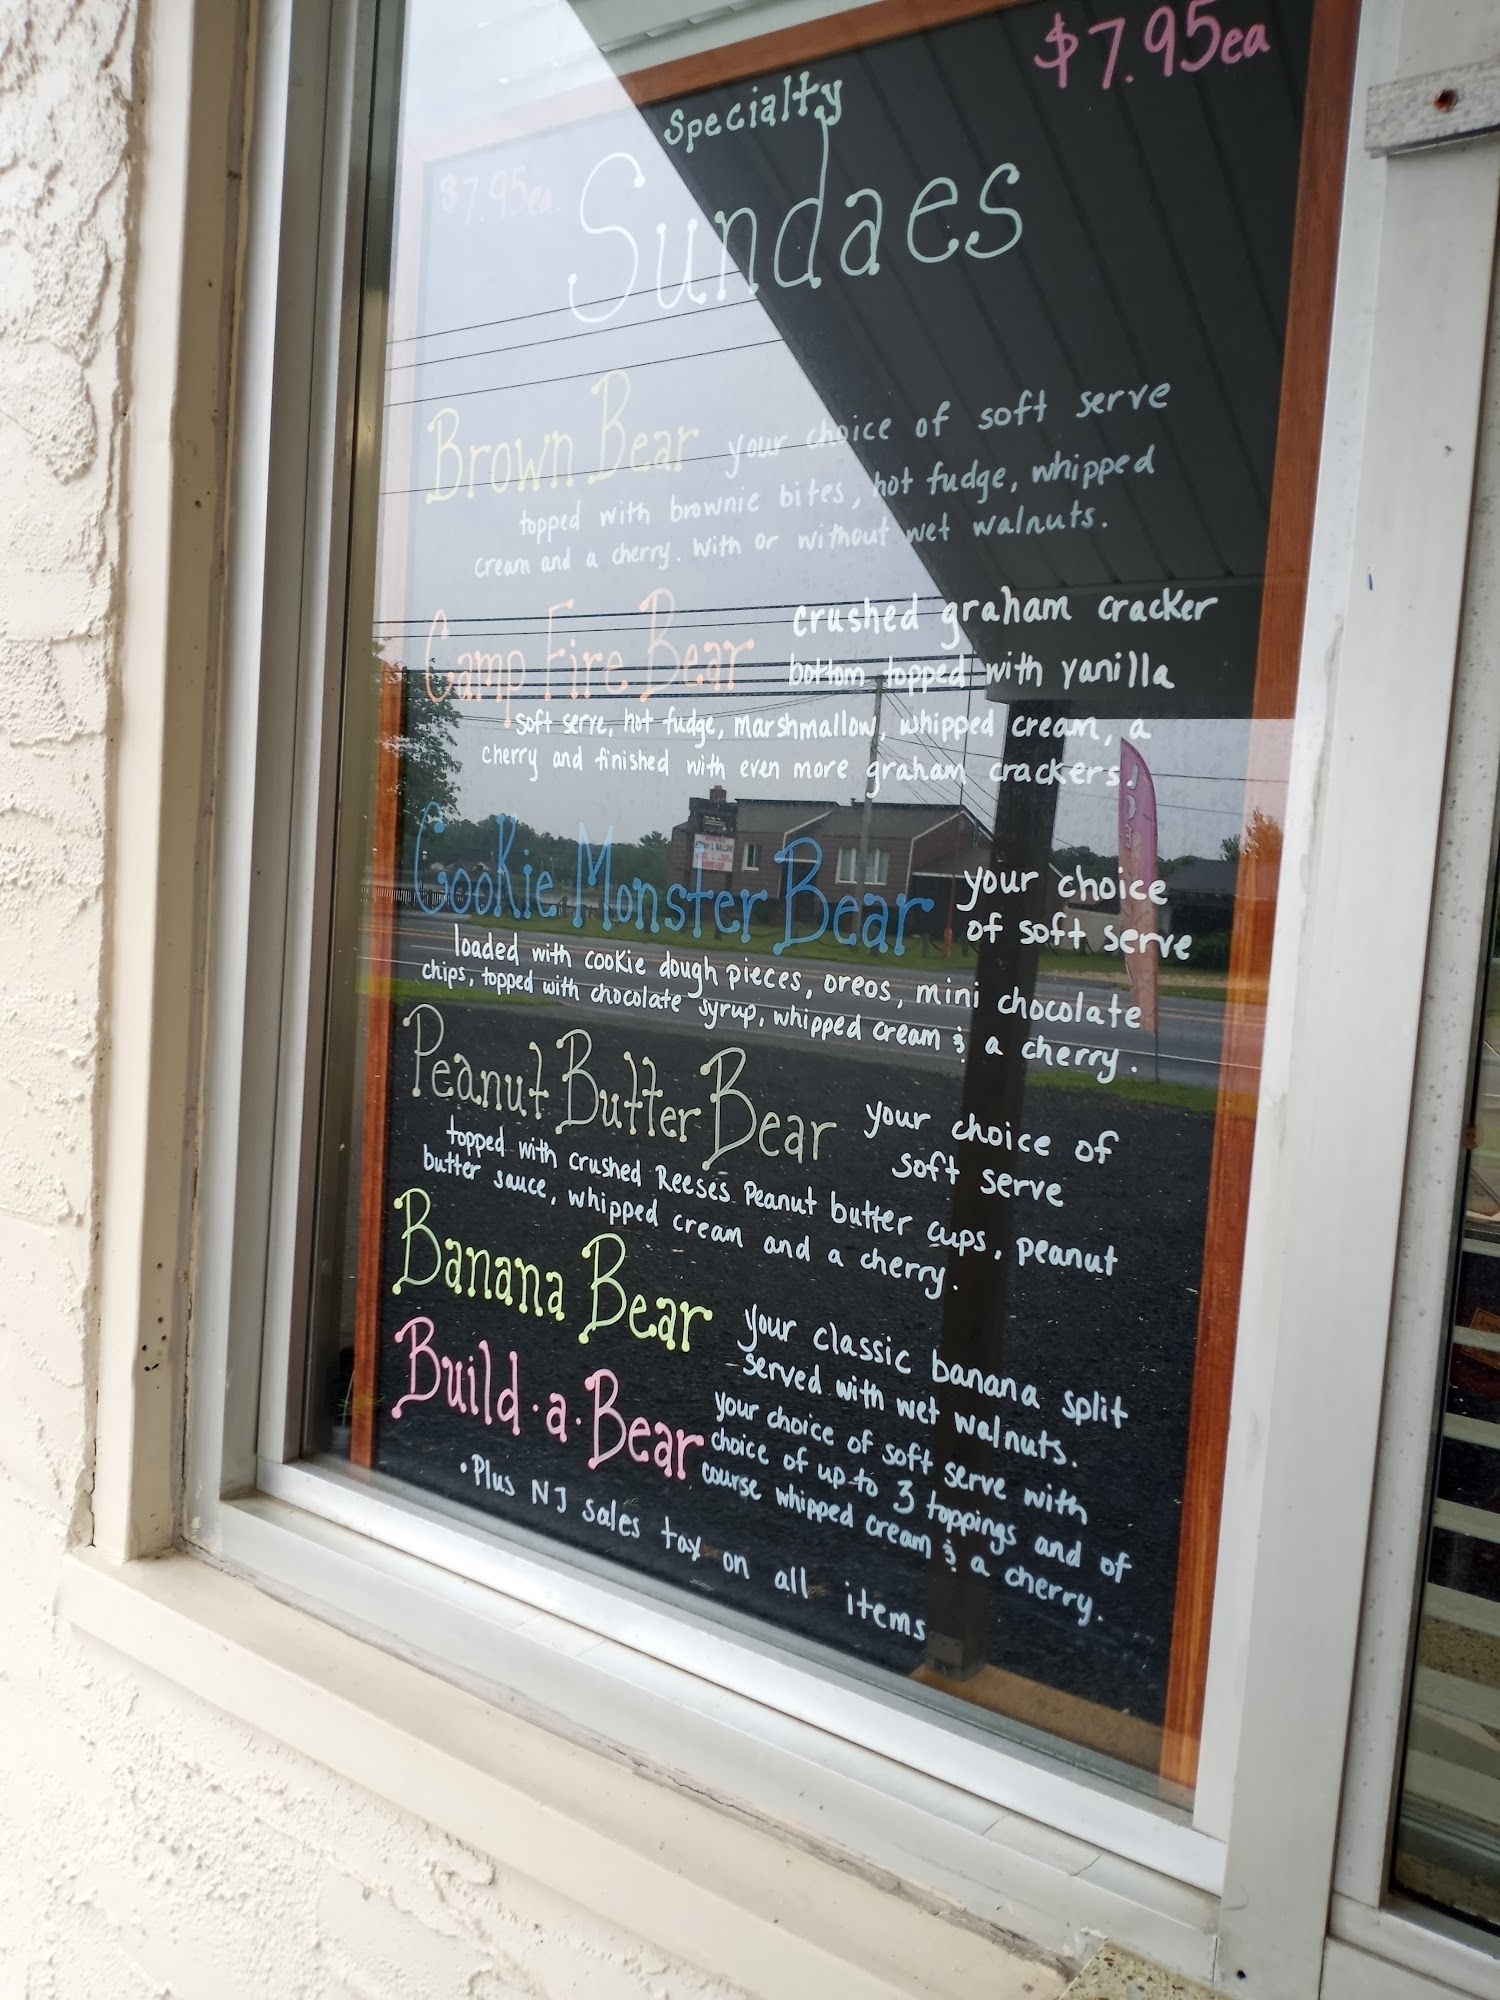 $7.95ea
Specialty
$7.95ea.
Sundaes
Brown Bear your choice of soft serve
topped with brownie bites, hot fudge, whipped
cream and a cherry. With or without wet walnuts.
Camp Fire Bear crushed graham cracker
bottom topped with vanilla
soft serve, hot fudge, marshmallow, whipped cream, a
cherry and finished with even more graham crackers.
Cookie Monster Bear your choice
of soft serve
loaded with cookie dough pieces, oreos, mini chocolate
chips, topped with chocolate syrup, whipped cream & a cherry.
Peanut Butter Bear your choice of
soft serve
topped with crushed Reese's Peanut butter cups, peanut
butter sauce, whipped cream and a cherry.
Banana Bear your classic banana split
served with wet walnuts.
Build·a·Bear your choice of soft serve with
choice of up to 3 toppings and of
course whipped cream & a cherry.
•Plus NJ sales tax on all items